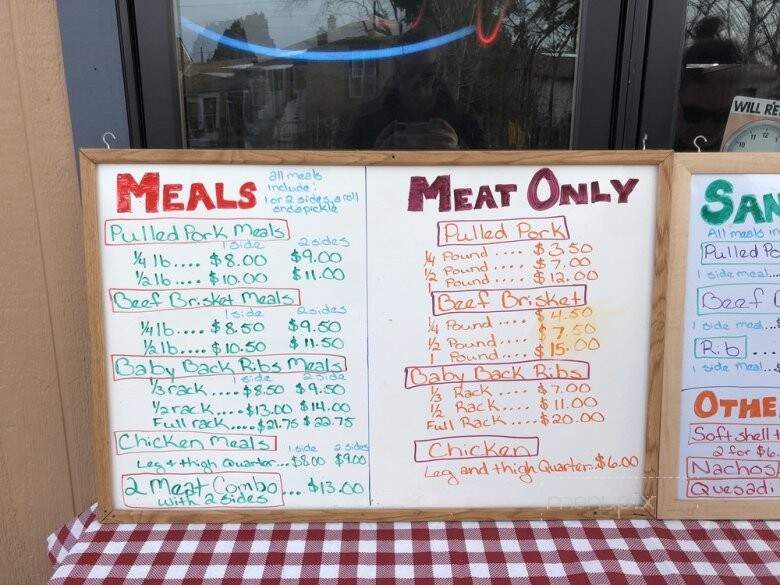 WILL RE
10 11 12
MEALS
all meals
include:
1 or 2 sides, a roll
and a pickle
Pulled Pork Meals
1 side 2 sides
1/4 lb.... $8.00 $9.00
1/2 lb.... $10.00 $11.00
Beef Brisket Meals
1 side 2 sides
1/4 lb.... $8.50 $9.50
1/2 lb.... $10.50 $11.50
Baby Back Ribs Meals
1 side 2 side
1/3 rack.... $8.50 $9.50
1/2 rack.... $13.00 $14.00
Full rack.... $21.75 $22.75
Chicken Meals
1 side 2 sides
Leg & thigh Quarter... $8.00 $9.00
2 Meat Combo... $13.00
with 2 sides
MEAT ONLY
Pulled Pork
1/4 Pound .... $3.50
1/2 Pound .... $7.00
1 Pound .... $12.00
Beef Brisket
1/4 Pound .... $4.50
1/2 Pound .... $7.50
1 Pound .... $15.00
Baby Back Ribs
1/3 Rack.... $7.00
1/2 Rack.... $11.00
Full Rack.... $20.00
Chicken
Leg and thigh Quarter..$6.00
SAN
All meals in
Pulled Po
1 side meal...
Beef
1 side meal...$
Rib ...
1 side meal...$
OTHE
Soft shell t
2 for $6.
Nachos
Quesadi
menupix